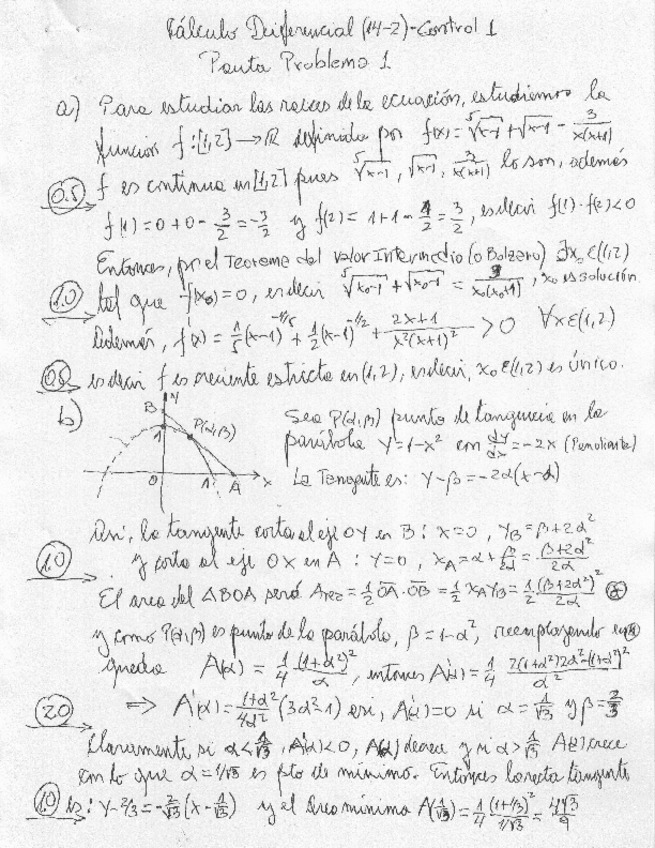 Cálculo Diferencial (14-2)-Control 1
Pauta Problema 1
a) Para estudiar las raices de la ecuación, estudiemos la
función f:[1,2]→ℝ definida por f(x)=⁵√(x-1)+√(x-1) - 3/(x(x+1))
0.5 f es continua en [1,2] pues ⁵√(x-1), √(x-1), 3/(x(x+1)) lo son, además
f(1)=0+0-3/2=-3/2 y f(2)=1+1-1/2=3/2, es decir f(1)·f(2)<0
Entonces, por el Teorema del Valor Intermedio (o Bolzano) ∃x₀∈(1,2)
1.0 tal que f(x₀)=0, es decir ⁵√(x₀-1)+√(x₀-1)=3/(x₀(x₀+1)), x₀ es solución
Además, f'(x)=1/5(x-1)^(-4/5)+1/2(x-1)^(-1/2)+(2x+1)/(x²(x+1)²)>0 ∀x∈(1,2)
0.5 es decir f es creciente estricta en (1,2), es decir, x₀∈(1,2) es único.
b) B y P(α,β) 1 0 1 A x
Sea P(α,β) punto de tangencia en la
parábola y=1-x² con dy/dx=-2x (Pendiente)
La Tangente es: y-β=-2α(x-α)
Así, la tangente corta al eje OY en B: x=0, y_B=β+2α²
1.0 y corta al eje OX en A: y=0, x_A=α+β/2α=(β+2α²)/2α
El area del ΔBOA será Area=1/2 OA·OB=1/2 x_A y_B=1/2 (β+2α²)²/2α (*)
y como P(α,β) es punto de la parábola, β=1-α², reemplazando en (*)
queda A(α)=1/4 (1+α²)²/α, entonces A'(α)=1/4 (2(1+α²)2α²-(1+α²)²)/α²
2.0 ⟹ A'(α)=(1+α²)/4α² (3α²-1) así, A'(α)=0 si α=1/√3 y β=2/3
Claramente si α<1/√3, A'(α)<0, A(α) decrece y si α>1/√3 A(α) crece
con lo que α=1/√3 es pto de mínimo. Entonces la recta tangente
1.0 es: y-2/3=-2/√3(x-1/√3) y el área mínima A(1/√3)=1/4 (1+1/3)²/(1/√3)=4√3/9